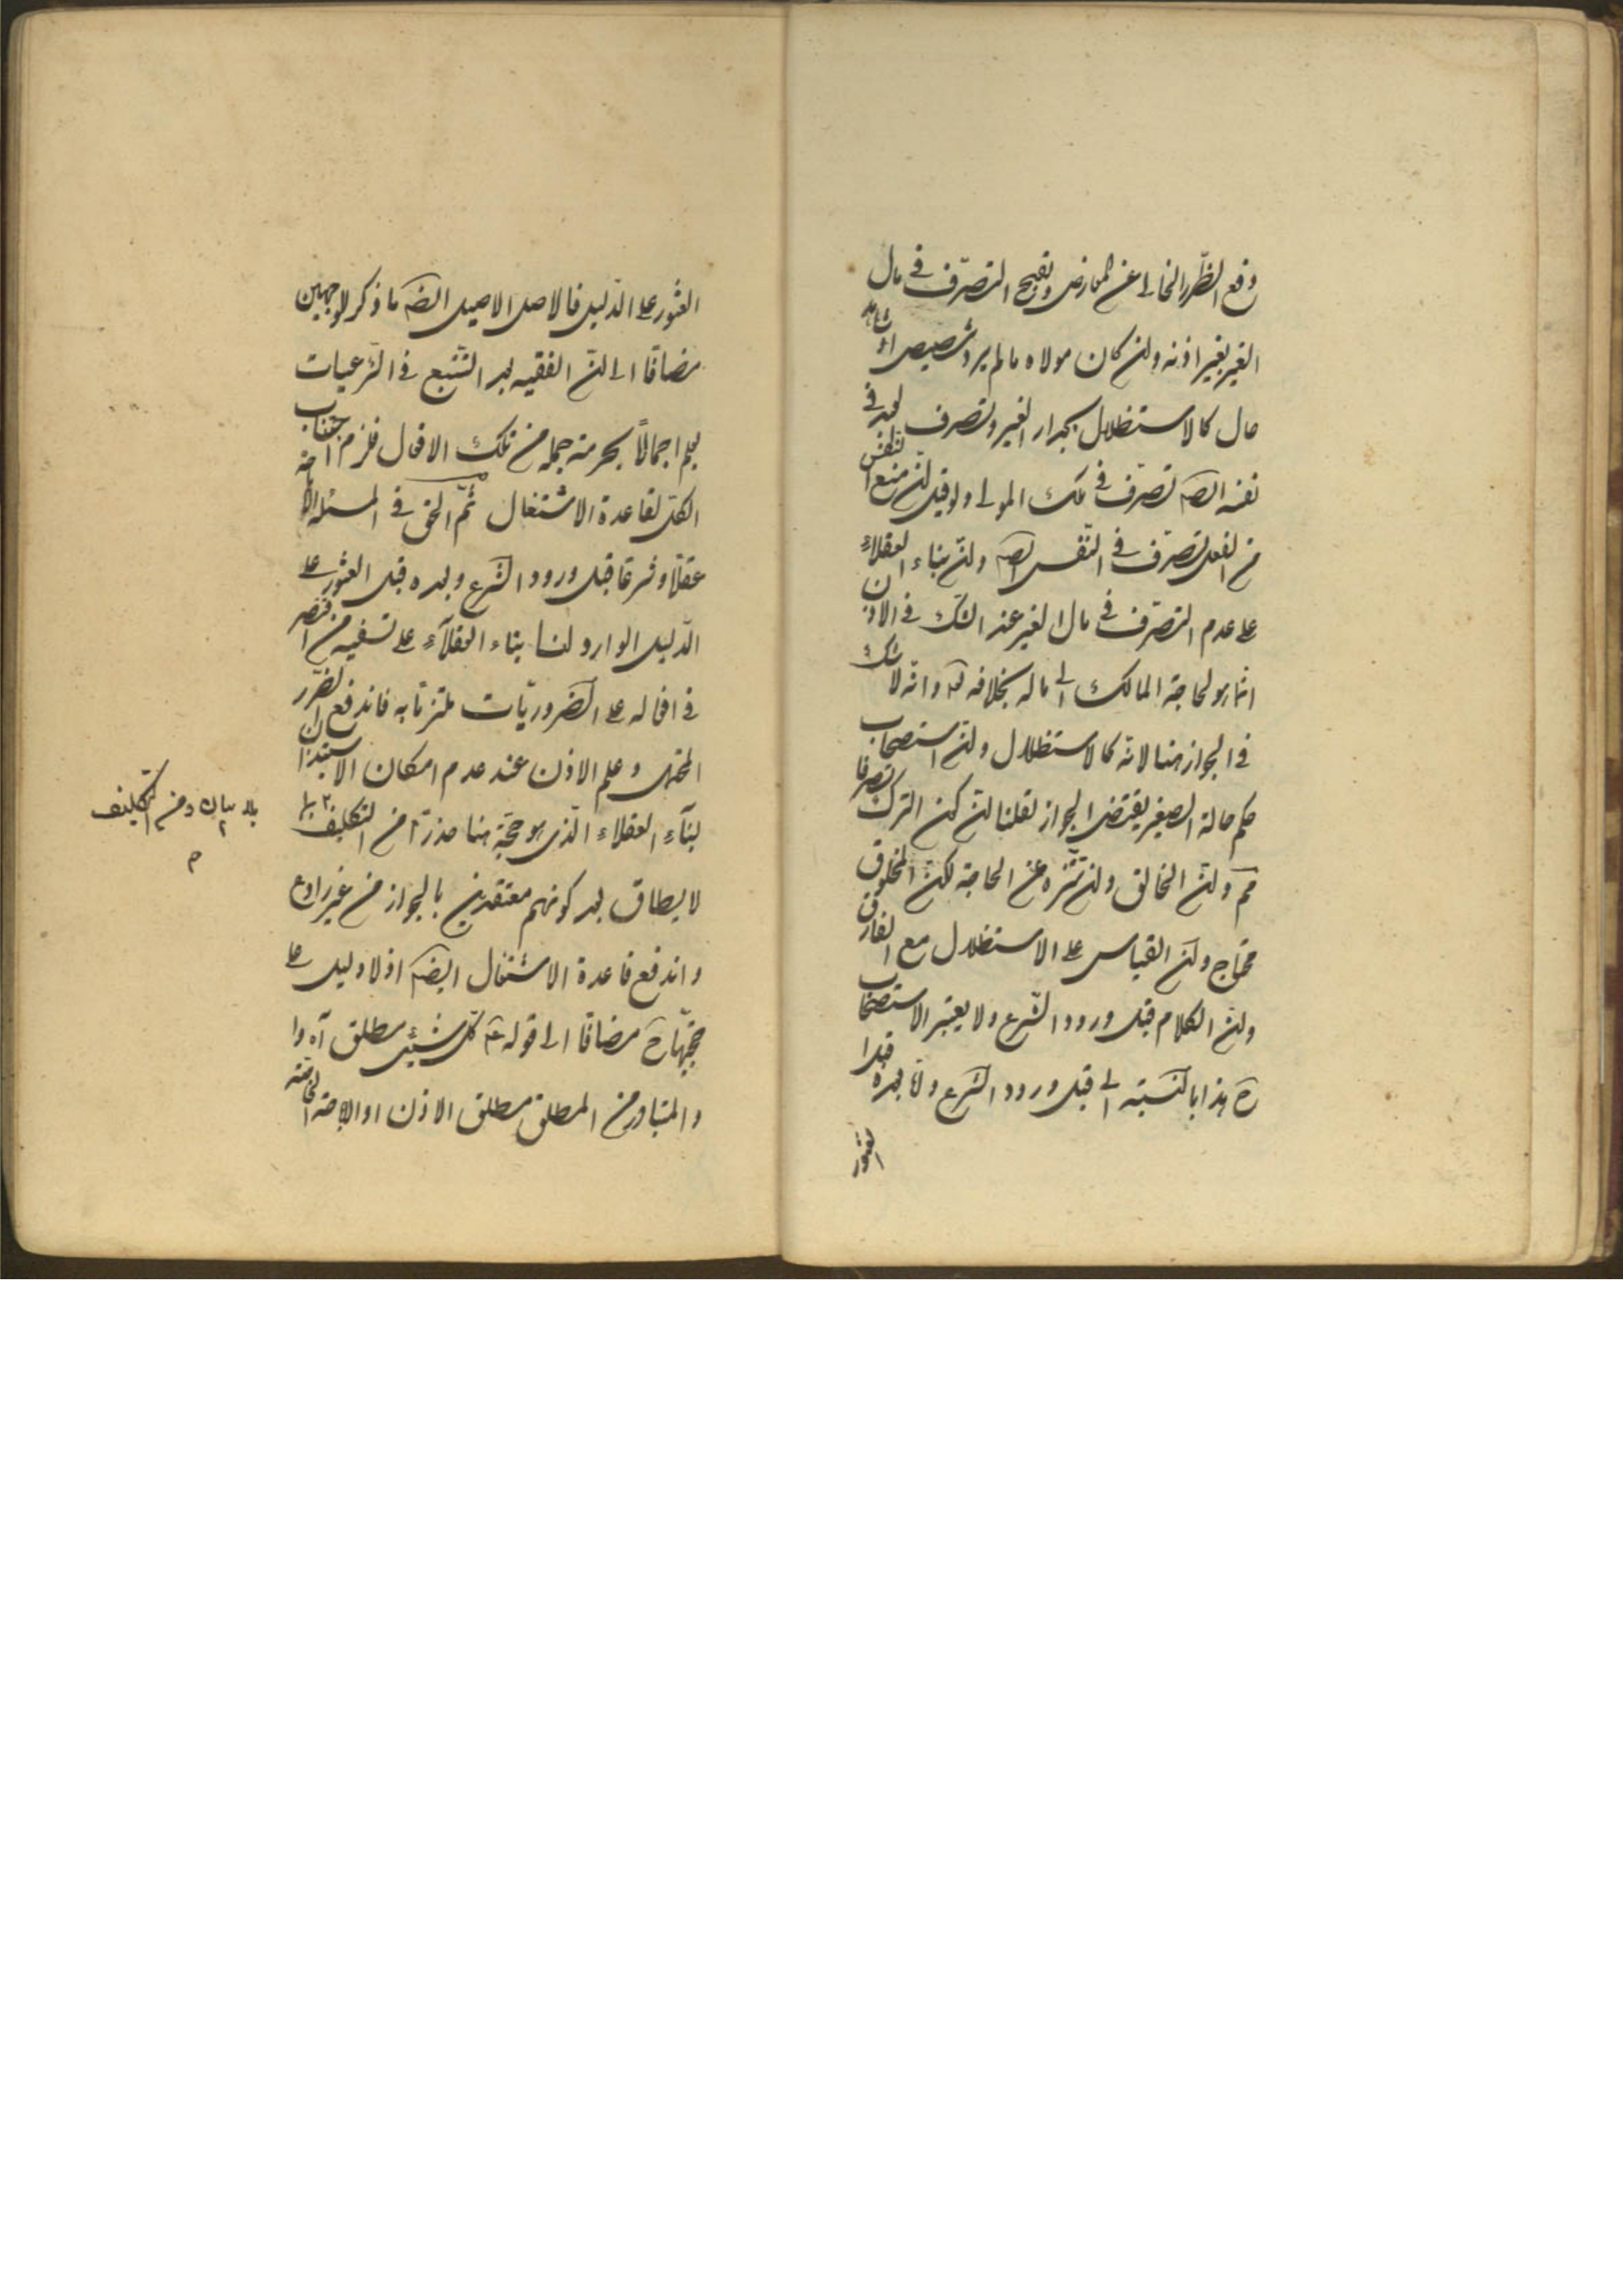 دفع الضّرر الخالى عن المعارض وتقبيح التصرّف فى مال
الغير بغير اذنه ولن كان مولاه ما لم يرد تخصيص او شاهد
حال كالاستظلال بجدار الغير وتصرف العبد فى
نفسه ايضا تصرّف فى ملك المولى ولو قيل لن منع النفس
من الفعل تصرّف فى النّفس ايضا ولن بناء العقلاء
على عدم التصرّف فى مال الغير عند الشّك فى الاذن
انما هو لحاجة المالك الى ماله بخلافه تع وانه لا شك
فى الجواز هنا لانه كالاستظلال ولن استصحاب
حكم حالة الصغير يقتضى الجواز لقلنا لن كون الترك تصرفا
مم ولن الخالق ولن تنزه عن الحاجة لكن المخلوق
محتاج ولن القياس على الاستظلال مع الفارق
ولن الكلام قبل ورود الشّرع ولا يعتبر الاستصحاب
ح هذا بالنّسبة الى قبل ورود الشّرع ولما بعده قبل
العثور
العثور على الدّليل فالاصل الاصيل ايضا ما ذكر لوجهين
مضافا الى لن الفقيه بعد التتبع فى الشّرعيات
يعلم اجمالًا بحرمة جملة من تلك الافعال فلزم اجتناب
الكل لقاعدة الاشتغال ثمّ الحق فى المسئلة الاباحة
عقلًا وشرعا قبل ورود الشّرع وبعده قبل العثور على
الدّليل الوارد لنا بناء العقلاء على تسفيه من اقتصر
فى افعاله على الضّروريّات ملتزمًا به فاندفع الضّرر
المحتمل وعلم الاذن عند عدم امكان الاستيذان
لبناء العقلاء الّذى هو حجّة هنا حذرًا من التكليف بما
بلا بيان ومن التّكليف
م
لا يطاق بعد كونهم معتقدين بالجواز من غير رادع
واندفع قاعدة الاشتغال ايضا اذ لا دليل على
حجّيتها ح مضافا الى قوله ع كلّ شيئ مطلق آه وا
والمتبادر من المطلق مطلق الاذن او الاباحة الخاصة